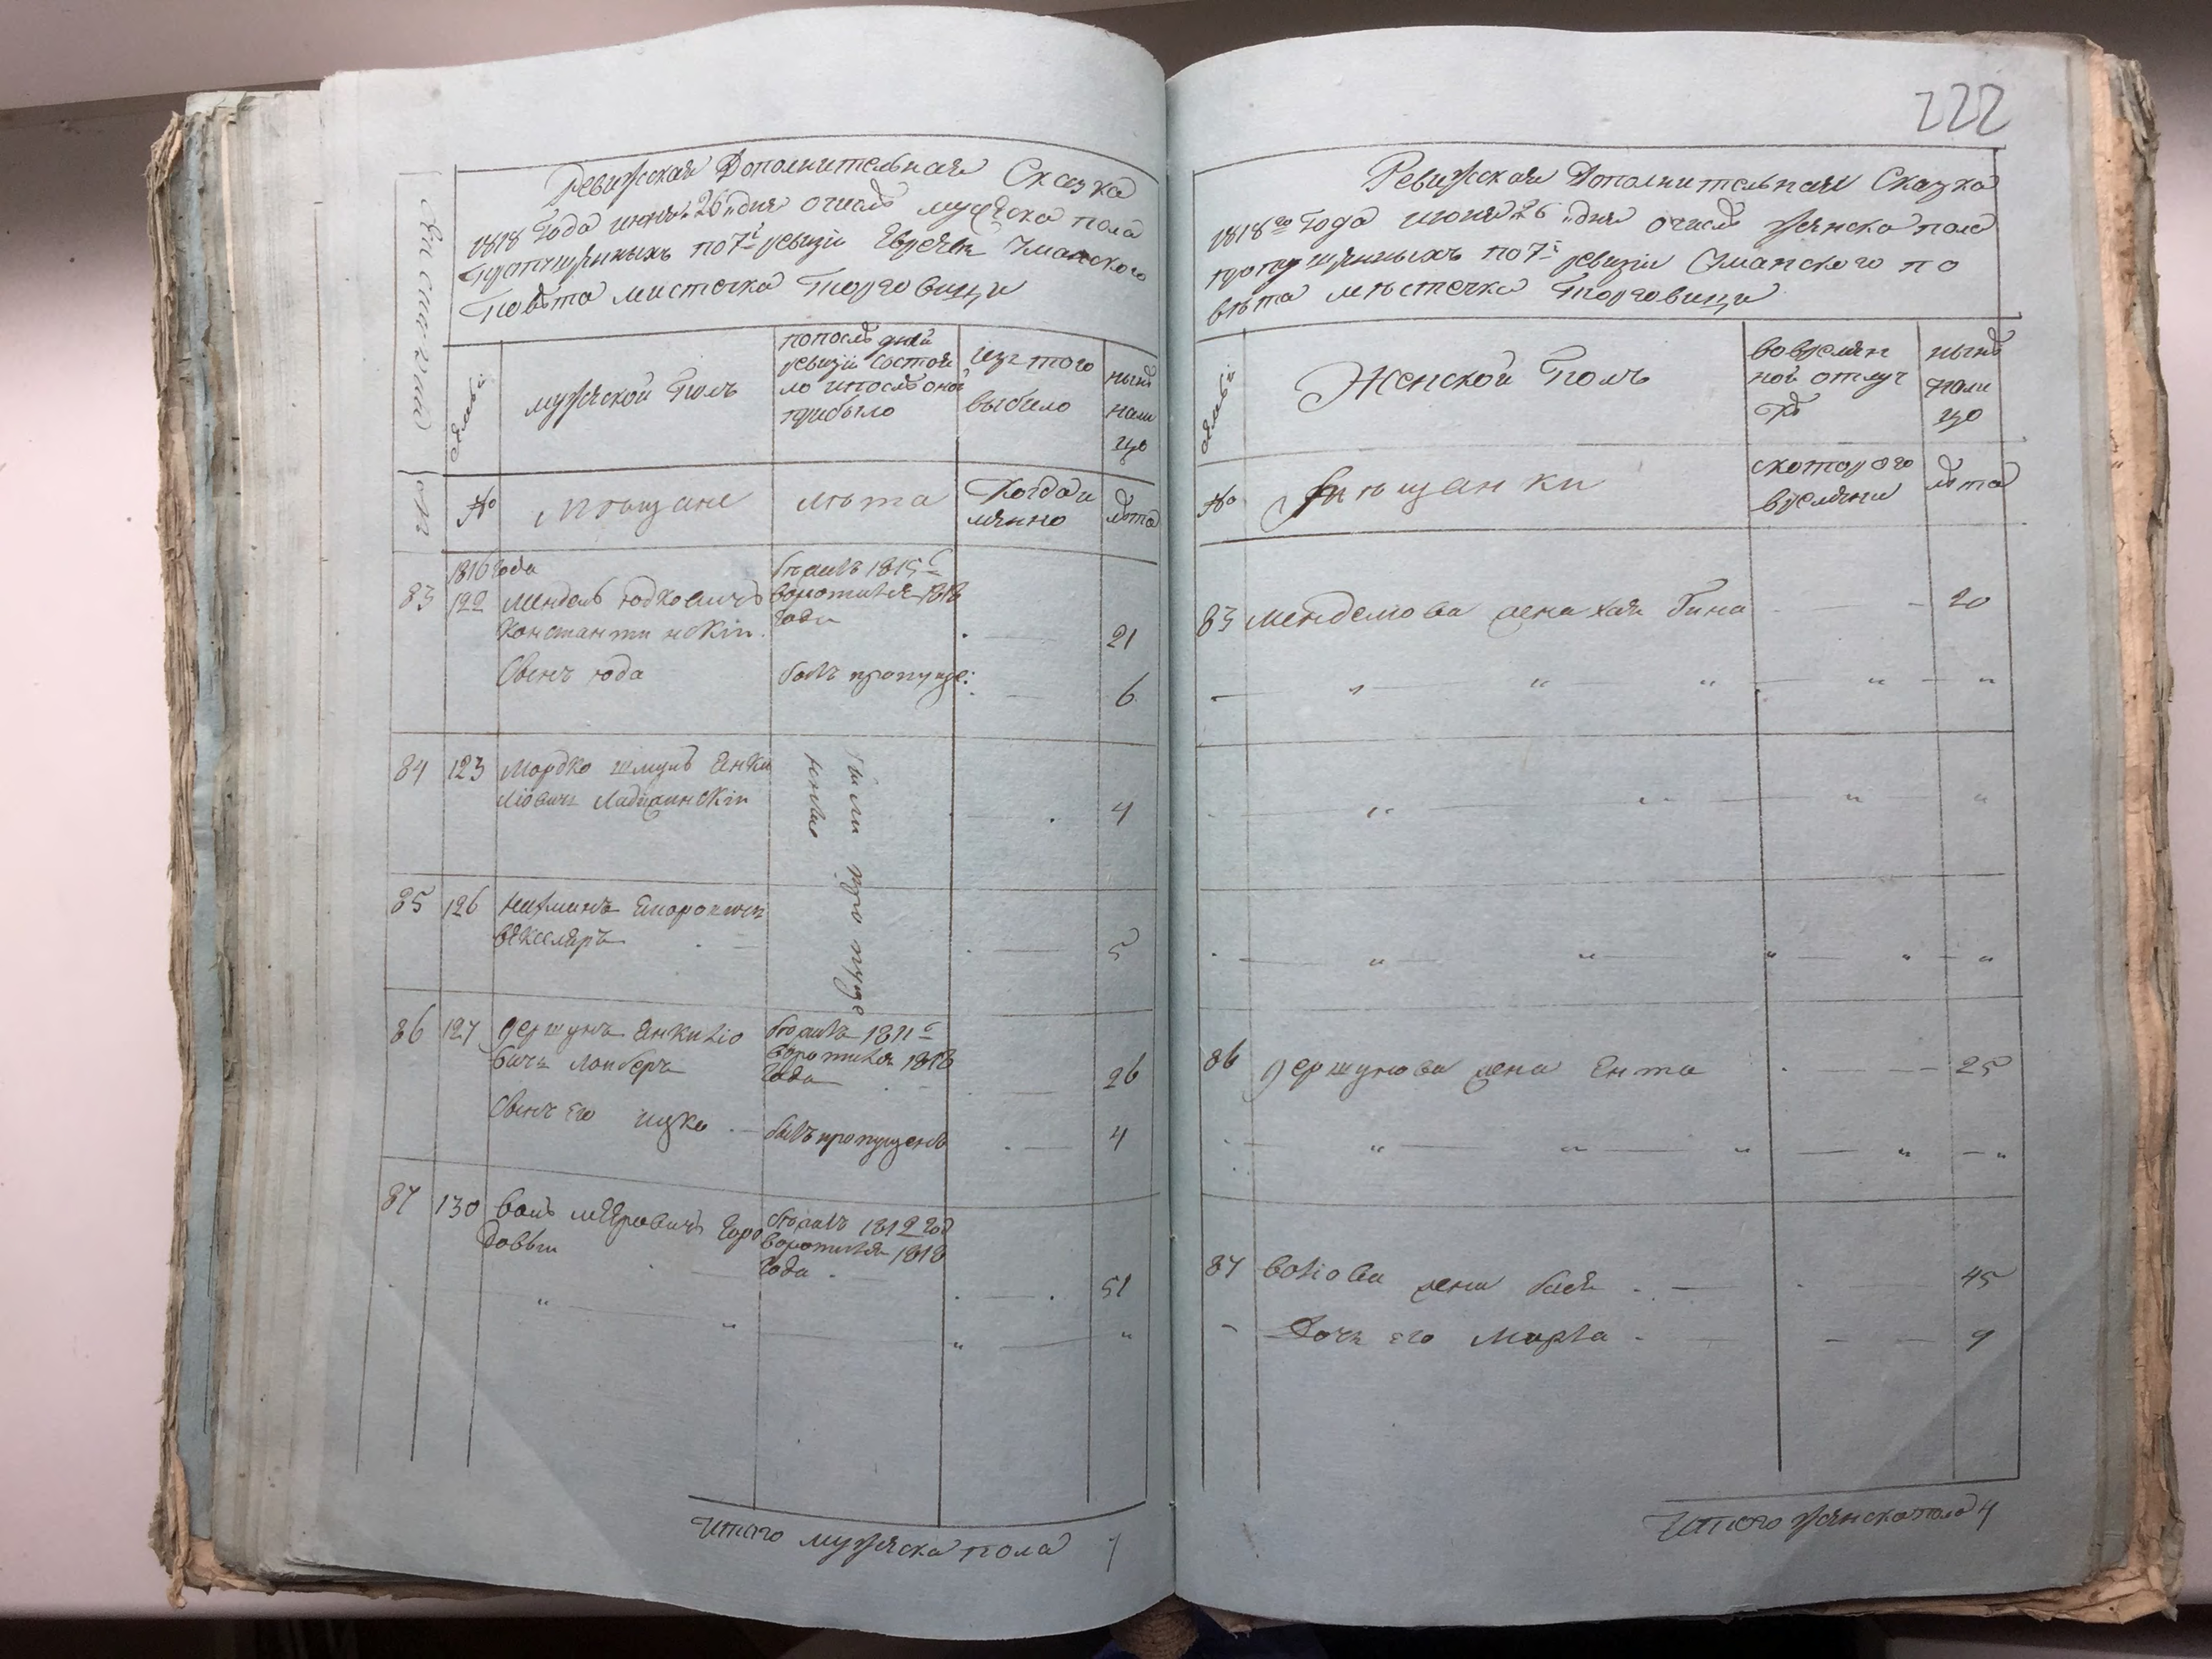 222
Ревижская Дополнительная Сказка
1818 Года июня 26 дня очисле мужеска пола
пропущенныхъ по 7й ревизiи Евреяхъ Уманского
Повета местечка Торговици
мужеской Полъ
попоследней
ревизiи состоя
ло ипосле оной
прибыло
изъ того
выбыло
ныне
нали
цо
№
мѣщане
лѣта
Когда и
мянно
лета
83
1816 года
122 мендель юдковичъ
Константинскiй
отъ 1815
воротился 1818
года
21
Сынъ юда
былъ пропуще:
6
84
123 мордко шмуль Янке
лiовичъ Ладижинскiй
были пропуще
нные
4
85
126 нахманъ
векслеръ
5
86
127 гершунъ Янкелiо
вичъ
1811
воротился 1818
года
26
Сынъ его ицко
былъ пропущенъ
4
87
130 волъ мееровичъ
1812 год
воротился 1818
года
51
Итого мужеска пола 7
Ревижская Дополнительная Сказка
1818го Года июня 26 дня очисле женска пола
пропущенныхъ по 7й ревизiи Уманского по
вѣта мѣстечка Торговици
Женской Полъ
вовремян
ной отлуч
ке
ныне
нали
цо
№
мѣщанки
скоторого
времяни
лета
83 менделiова жена хая Гина 20
86 гершунова жена Ента 25
87 волiова жена бася 45
Дочь его Марья 9
Итого женска пола 4